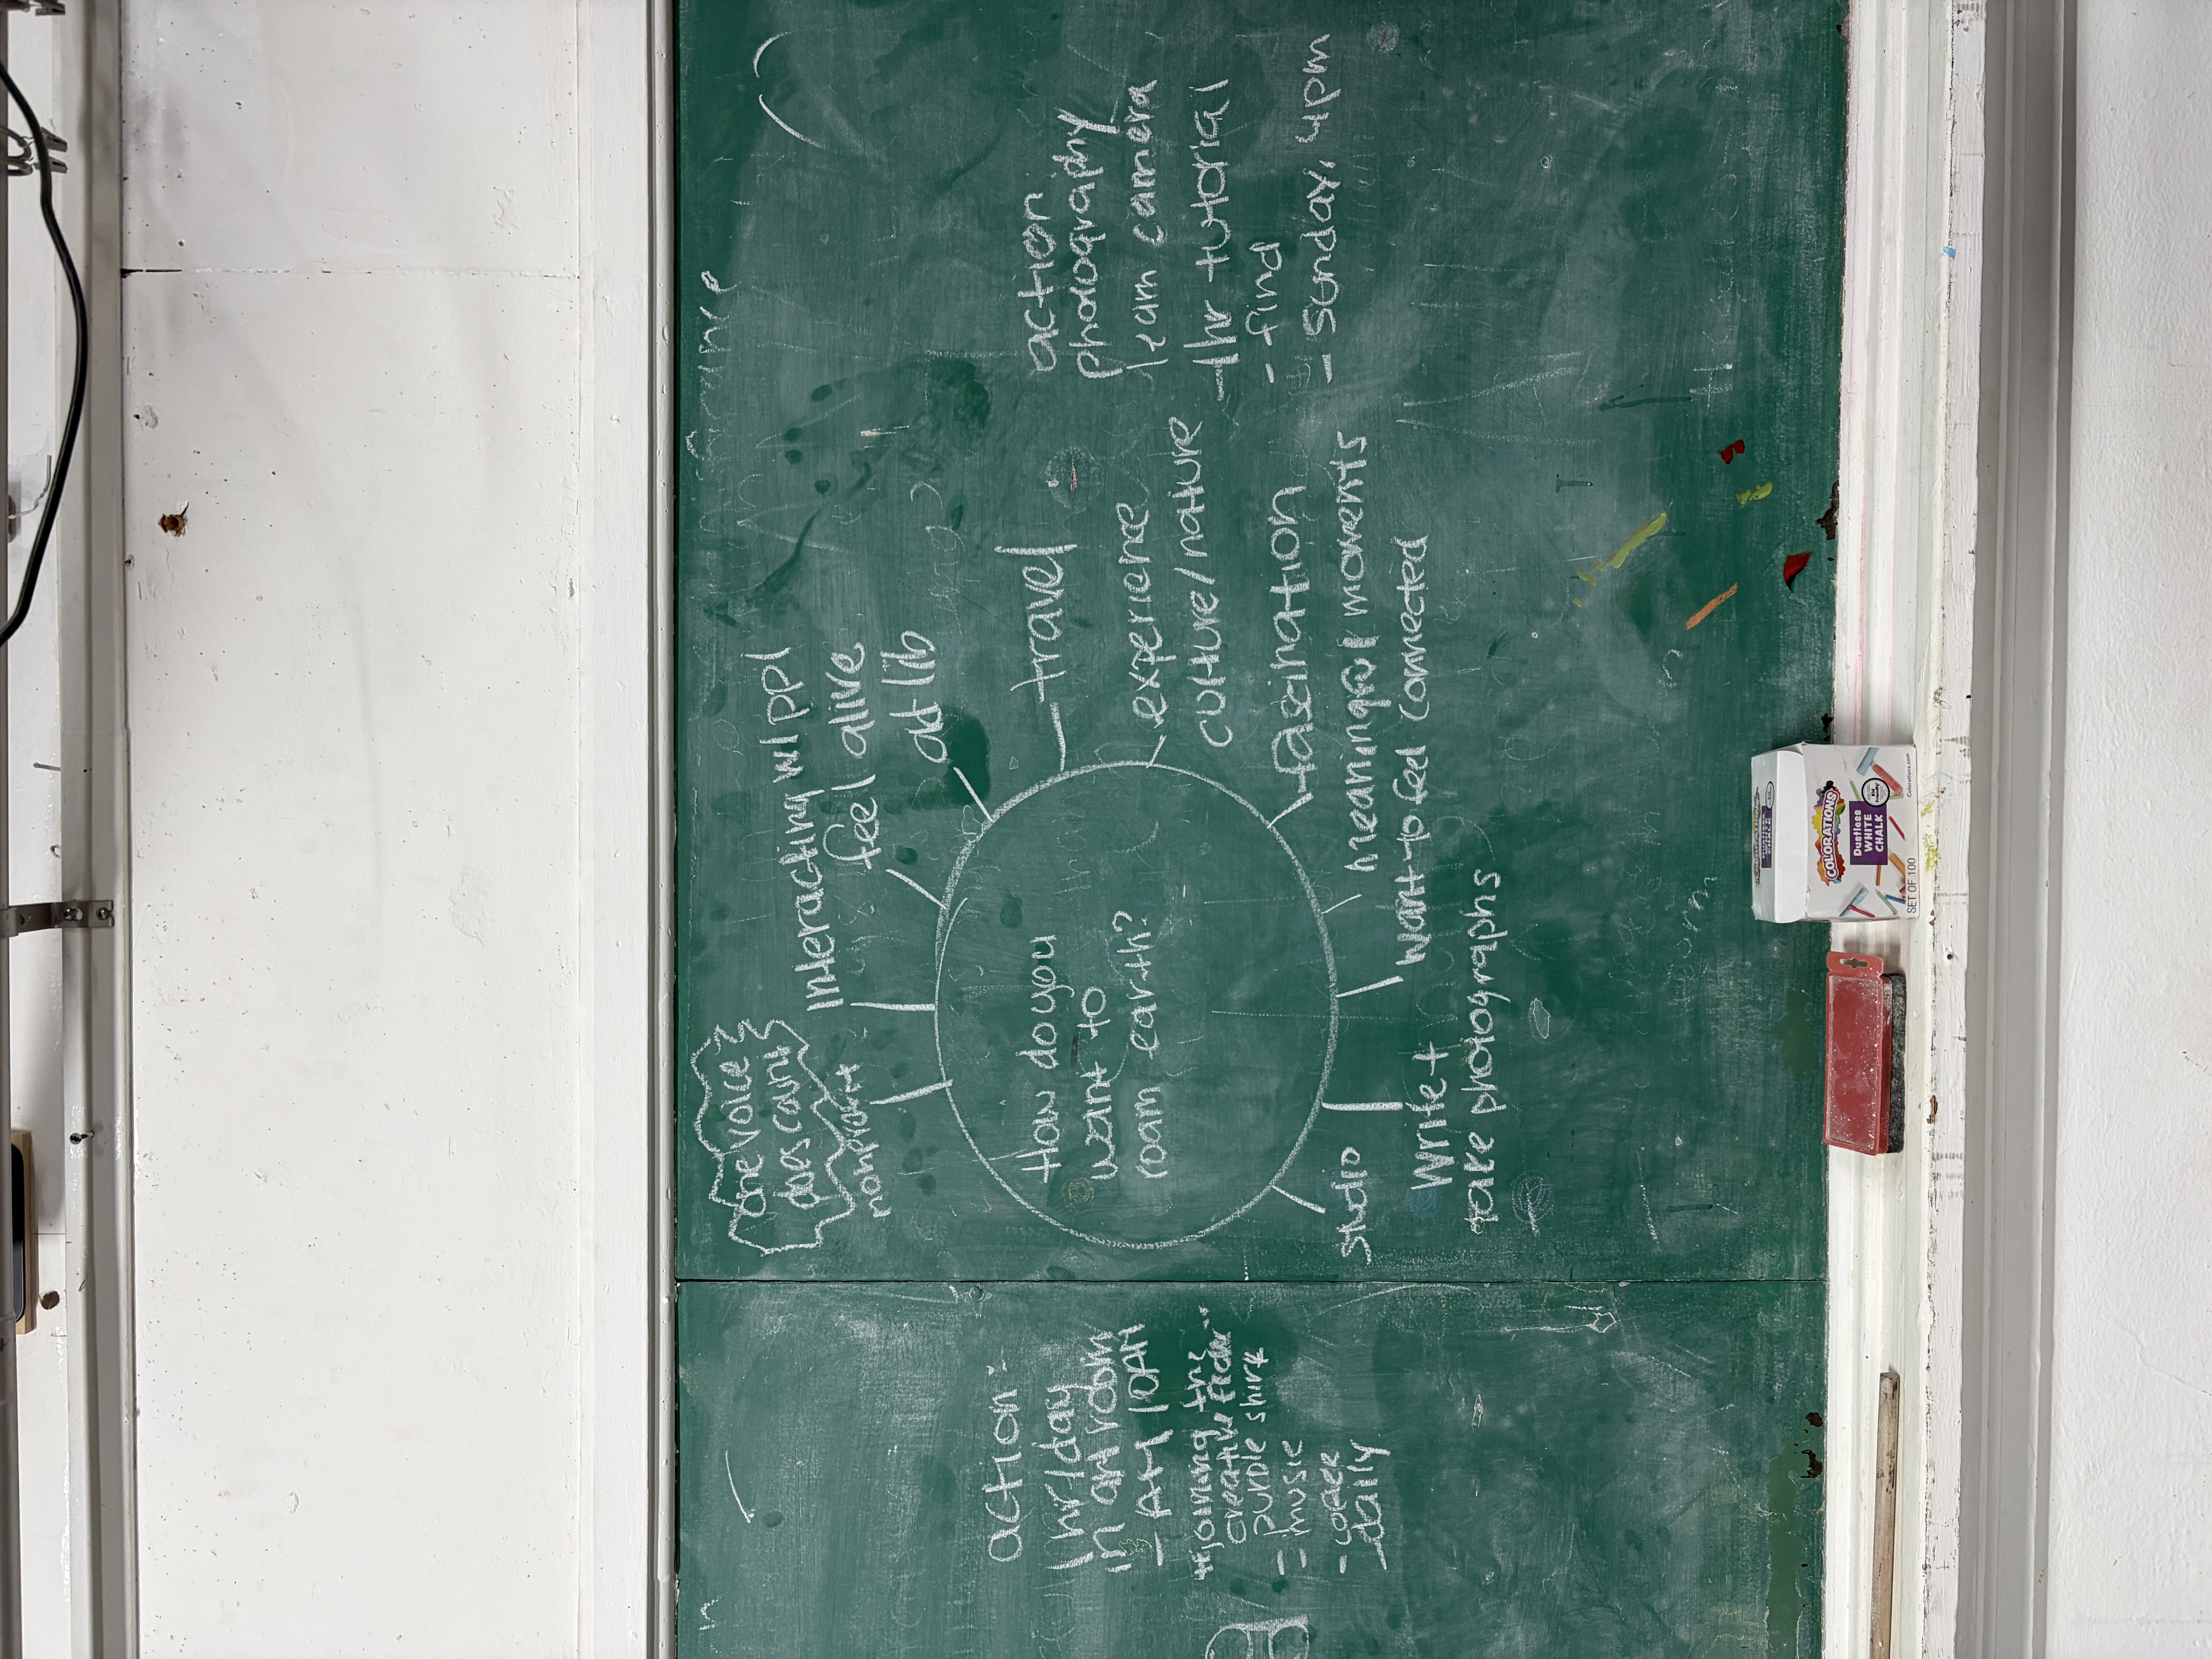 action:
1 hr/day
in art room
- AM 10AM
purple shirt
- music
- daily
one voice
does count
interacting w/ ppl
feel alive
ad lib
travel
experience
culture/nature
fascination
meaningful moments
want to feel connected
write +
take photographs
studio
How do you
want to
roam earth?
action
photography
learn camera
1hr tutorial
- find
- Sunday, 4pm
COLORATIONS
Dustless
WHITE
CHALK
SET OF 100